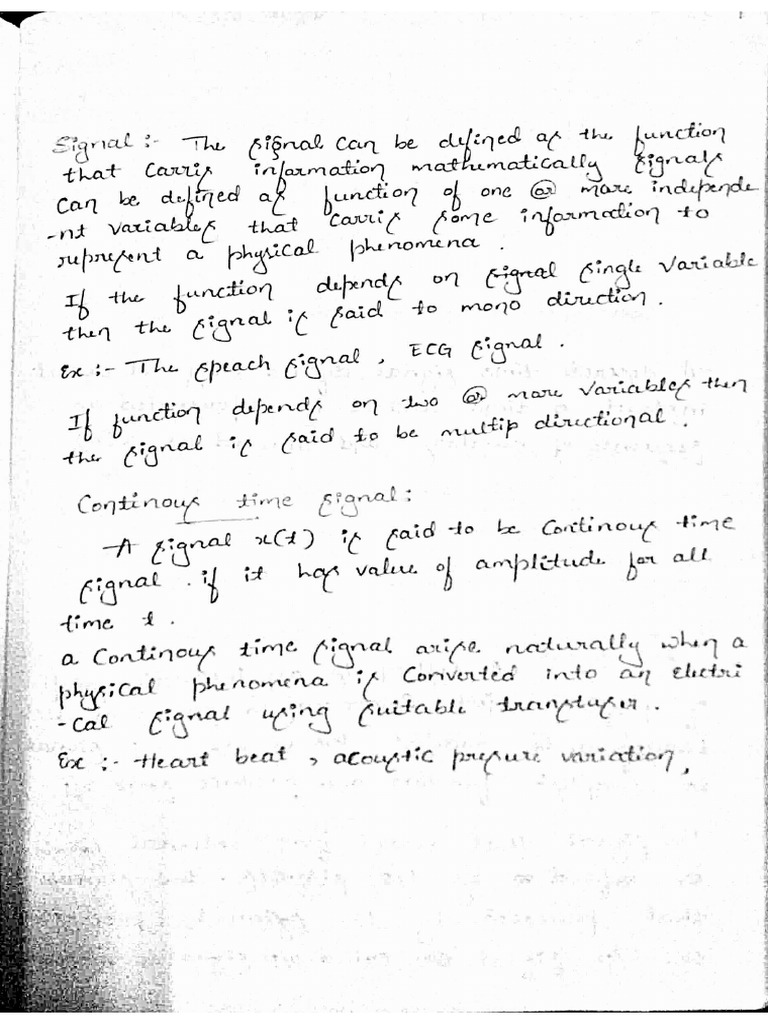 Signal :- The signal can be defined as the function
that carris information mathematically signals
can be defined as function of one or more independe
-nt variables that carris some information to
represent a physical phenomena.
If the function depends on signal single variable
then the signal is said to mono direction.
Ex :- The speach signal, ECG signal.
If function depends on two or more variables then
the signal is said to be multip directional.
Continous time signal:
A signal x(t) is said to be continous time
signal. if it has value of amplitude for all
time t.
a continous time signal arise naturally when a
physical phenomena is converted into an electri
-cal signal using suitable transtuser.
Ex :- Heart beat, acoustic presure variation,